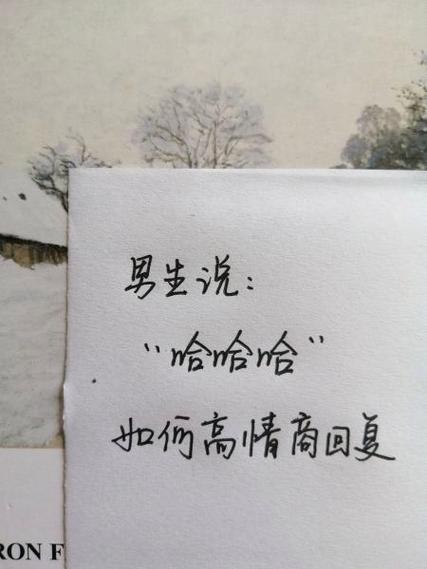 男生说：
“哈哈哈”
如何高情商回复
RON F